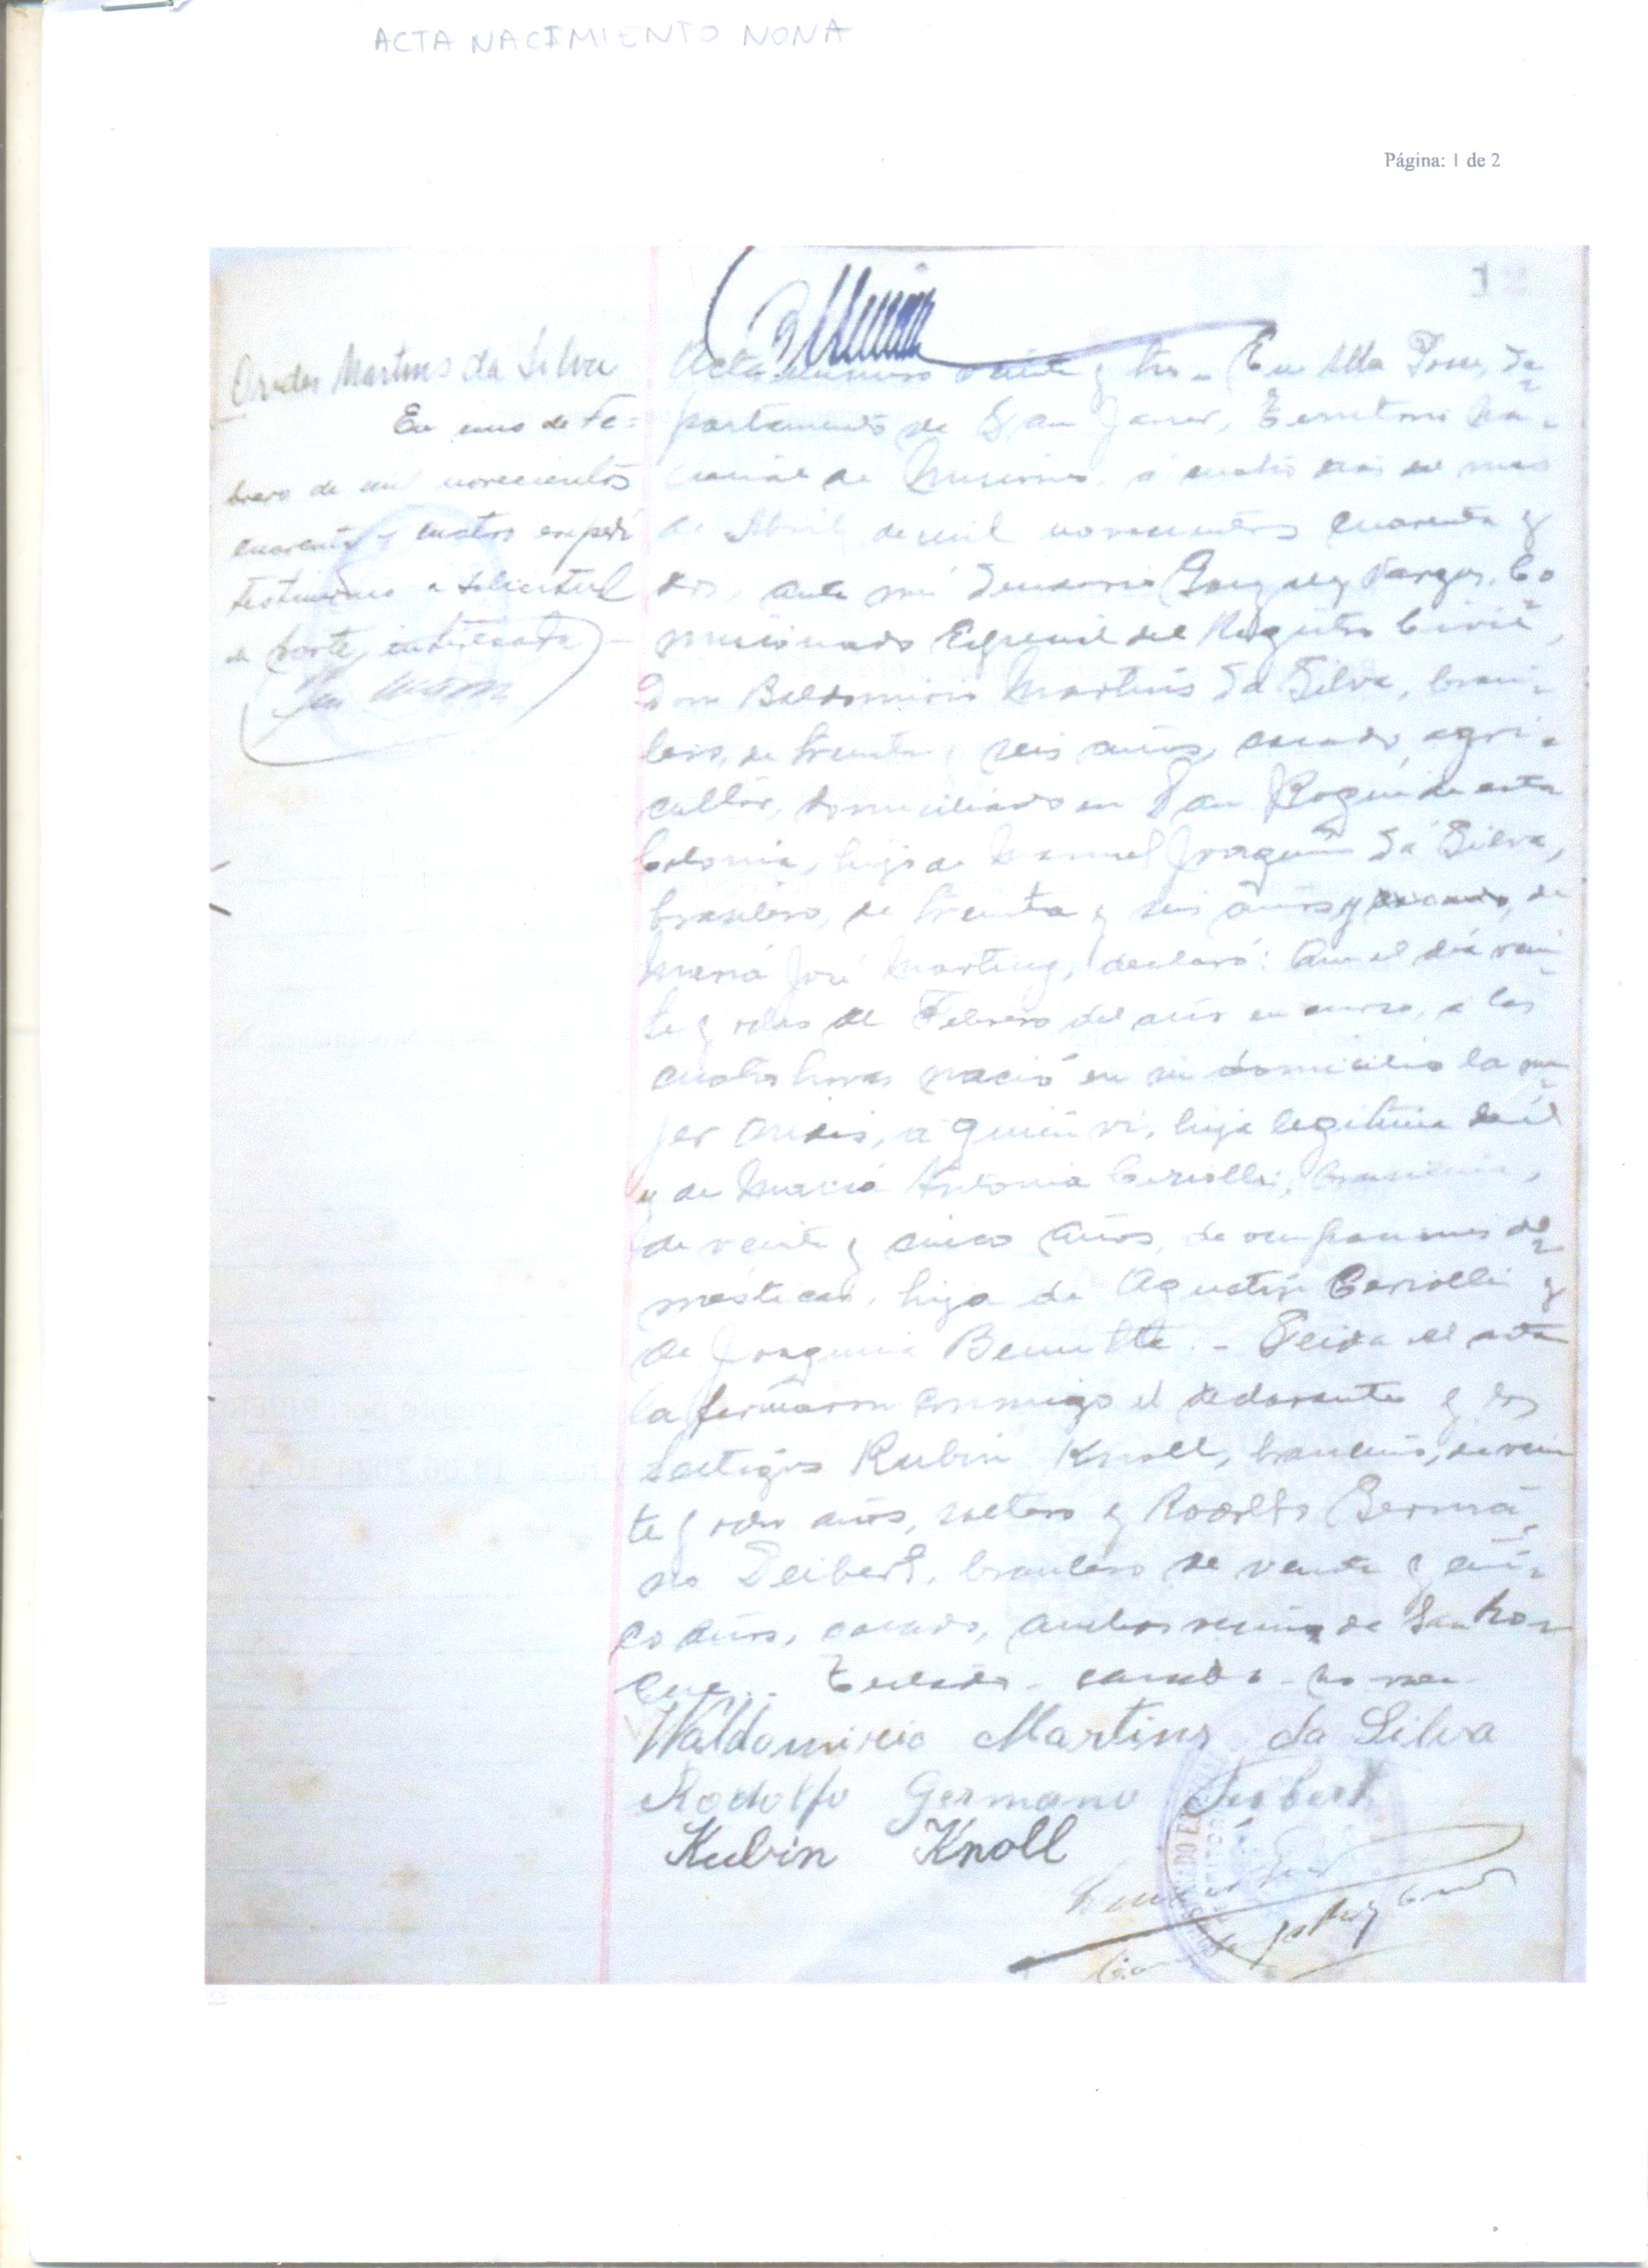 ACTA NACIMIENTO NONA
Página: 1 de 2
Martins da Silva
En uno de Fe=
brero de mil novecientos
cuarenta y cuatro expedí
testimonio a solicitud
de parte interesada
Acta número veinte y tres - En Alba Posse, De
partamento de San Javier, Territorio Na-
cional de Misiones, a cuatro días del mes
de Abril de mil novecientos cuarenta y
dos, ante mí González Vargas, Co
misionado Especial del Registro Civil,
Don Baldomirio Martins Da Silva, brasi-
lero, de treinta y seis años, casado, agri-
cultor, domiciliado en San Roque de esta
Colonia, hijo de Manuel Joaquin Da Silva,
brasilero, de treinta y seis años y de
María José Martins, declaró: Que el día vein
te y ocho de Febrero del año en curso, a las
cuatro horas nació en su domicilio la mu
jer a quien ví, hija legítima de él
y de María Antonia brasilera,
de veinte y cinco años, de ocupaciones do
mésticas, hija de Agustín y
de Joaquina - Leida el acta
la firmaron conmigo el declarante y los
testigos Rubin Knoll, brasilero, de vein
te y ocho años, soltero y Rodolfo Germa
no Leibert, brasilero de veinte y cin-
co años, casado, ambos vecinos de San Ro-
que.. Testado - casado - no vale -
Waldomirio Martins da Silva
Rodolfo Germano Leibert
Rubin Knoll